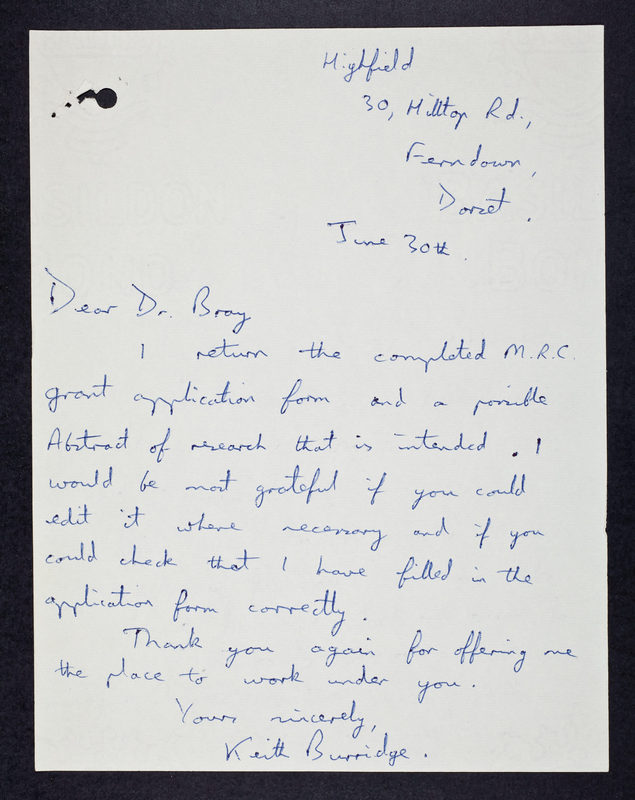 Highfield
30, Hilltop Rd.,
Ferndown,
Dorset.
June 30th.
Dear Dr. Bray
I return the completed M.R.C.
grant application form and a possible
Abstract of research that is intended. I
would be most grateful if you could
edit it where necessary and if you
could check that I have filled in the
application form correctly.
Thank you again for offering me
the place to work under you.
Yours sincerely,
Keith Burridge.